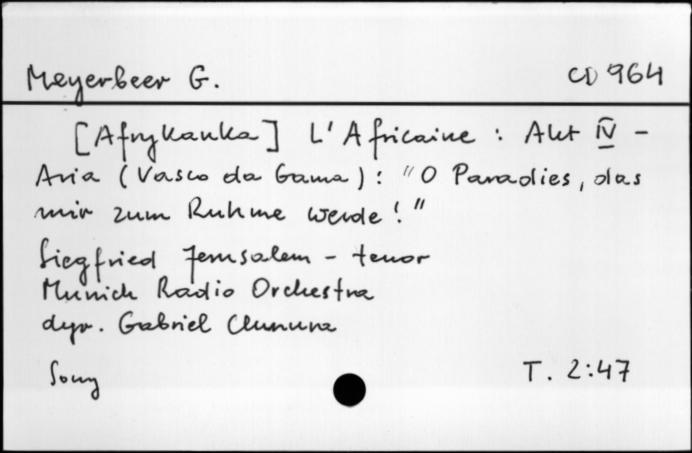 Meyerbeer G. CD 964
[Afrykanka] L'Africaine : Akt IV -
Aria (Vasco da Gama) : "O Paradies, das
mir zum Ruhme werde!"
Siegfried Jerusalem - tenor
Munich Radio Orchestra
dyr. Gabriel Chmura
Sony T. 2:47